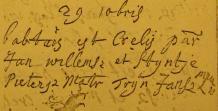 29 10bris
baptais est Crelis par
Jan willems et Styntje
Pieters Matr Tryn Jans